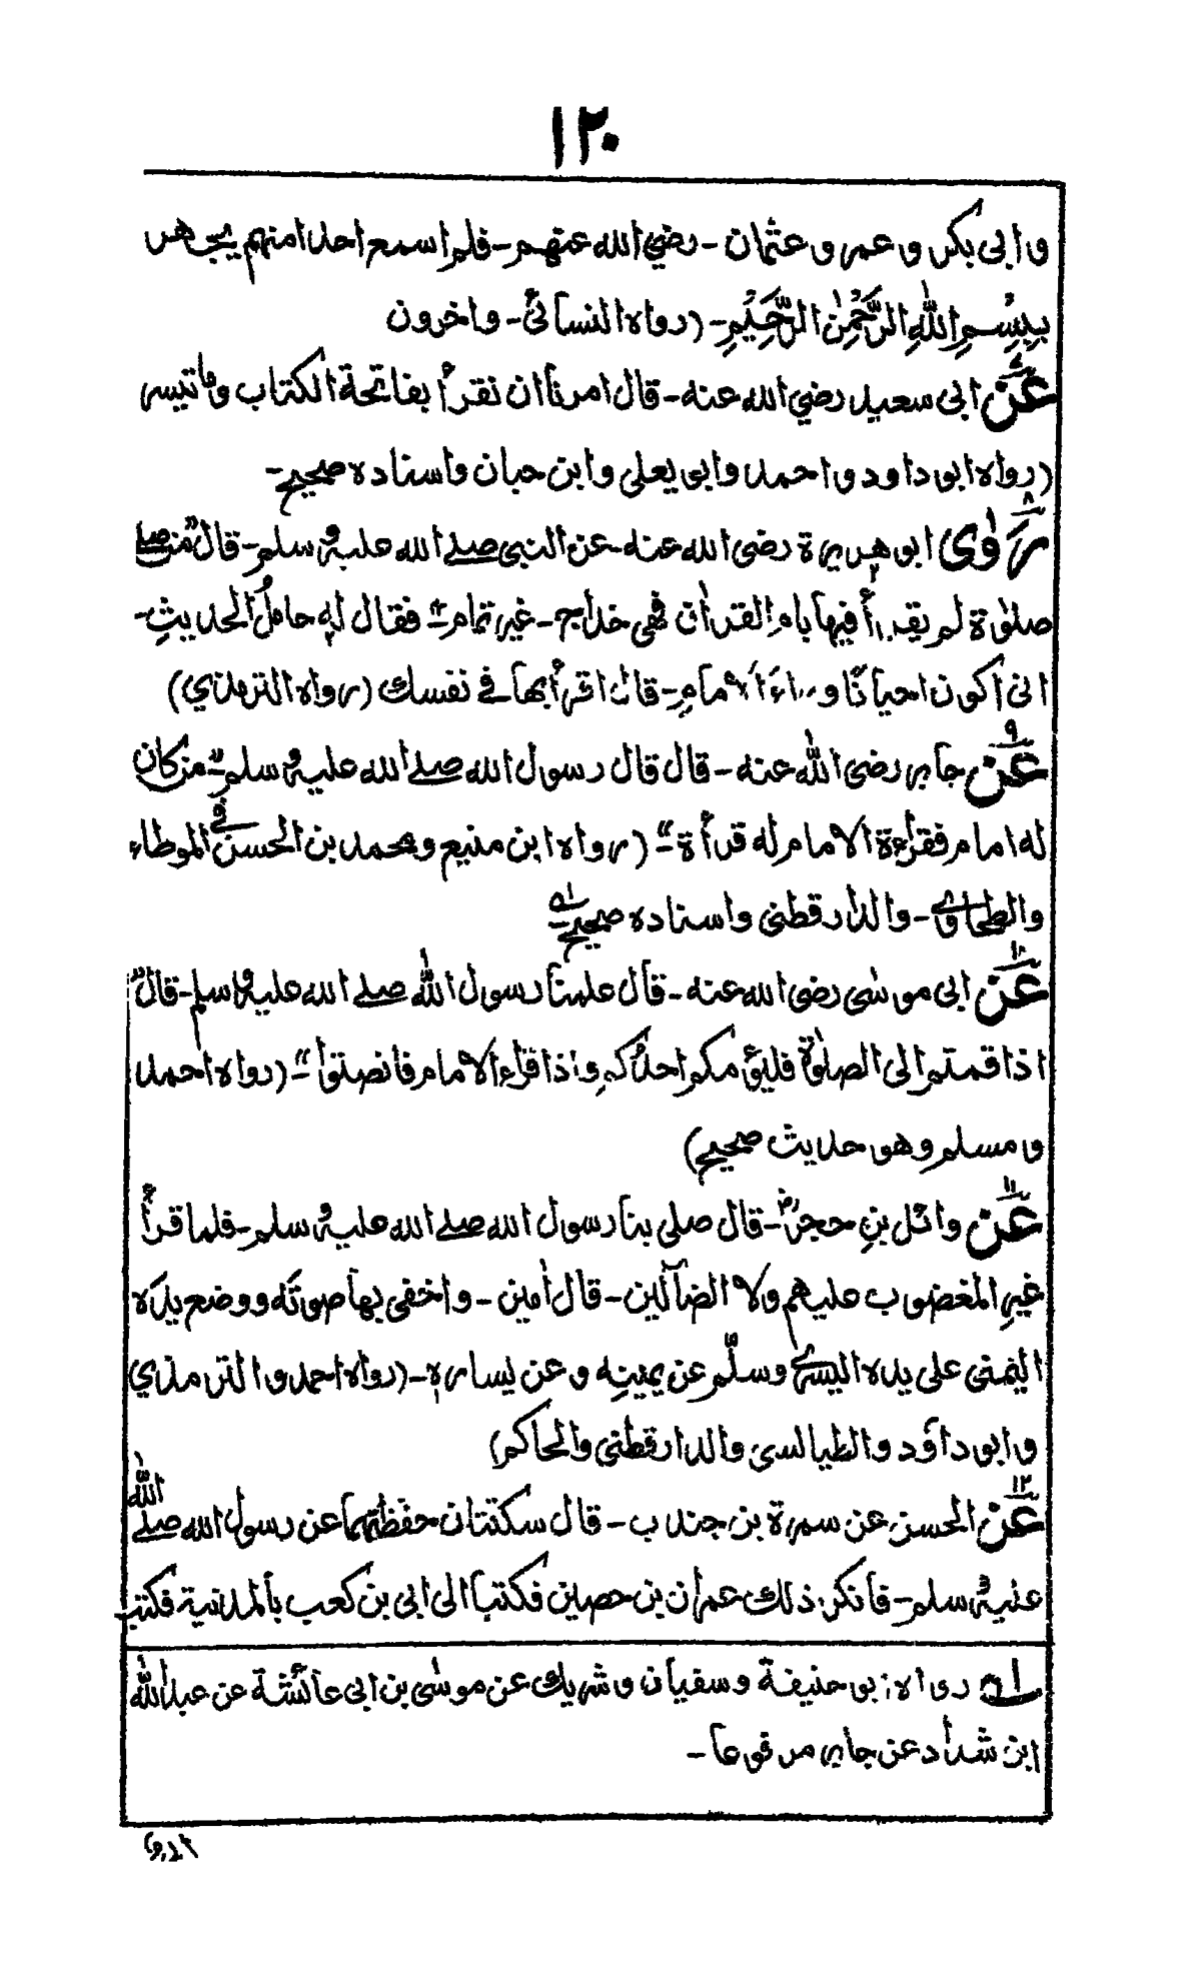 ١٢٠
و ابى بكر و عمر و عثمان - رضي الله عنهم - فلم اسمع احدا منهم يجهر
ببِسْمِ اللهِ الرَّحْمٰنِ الرَّحِيْمِ - (رواه النسائى - واخرون
٧ عن ابى سعيد رضي الله عنه - قال امرنا ان نقرأ بفاتحة الكتاب وما تيسر
(رواه ابو داود و احمد وابى يعلى وابن حبان واسناده صحيح -
٨ رَوٰى ابو هريرة رضى الله عنه - عن النبى صلے الله عليه وسلم - قال "من صلے
صلوٰة لم يقرأ فيها بام القراٰن فهى خداج - غير تمام" فقال له حاملُ الحديثِ -
انى اكون احيانًا وراءَ الامامِ - قال اقرأ بها فے نفسك (رواه الترمذي)
٩ عن جابر رضى الله عنه - قال قال رسول الله صلے الله عليه وسلم "من كان
له امام فقراءة الامام له قرأة" - (رواه ابن منيع ومحمد بن الحسن فى الموطاء
والطحاوے - والدارقطنى واسناده صحيح - ١ه
١٠ عن ابى موسٰى رضى الله عنه - قال علمنا رسول الله صلے الله عليه وسلم - قال "
اذا قمتم الى الصلوٰة فليؤمكم احدُكم واذا قرأ الامام فانصتوا" - (رواه احمد
و مسلم وهو حديث صحيح)
١١ عن وائل بنِ حجرؓ - قال صلى بنا رسول الله صلے الله عليه وسلم - فلما قرأ
غيرِ المغضوب عليهم ولا الضآلين - قال اٰمين - واخفى بها صوتَه ووضع يدَه
اليمنى على يده اليسرے وسلّم عن يمينِه وعن يساره - (رواه احمد و الترمذي
و ابو داؤد والطيالسى والدارقطنى والحاكم)
١٢ عن الحسن عن سمرة بن جندب - قال سكتتان حفظتهما عن رسول الله صلے الله
عليه وسلم - فانكر ذلك عمران بن حصين فكتبا الى ابى بن كعب بالمدنية فكتب
١ه رواه ابو حنيفة و سفيان و شريك عن موسٰى بن ابى عائشة عن عبد الله
ابن شداد عن جابر مرفوعا -